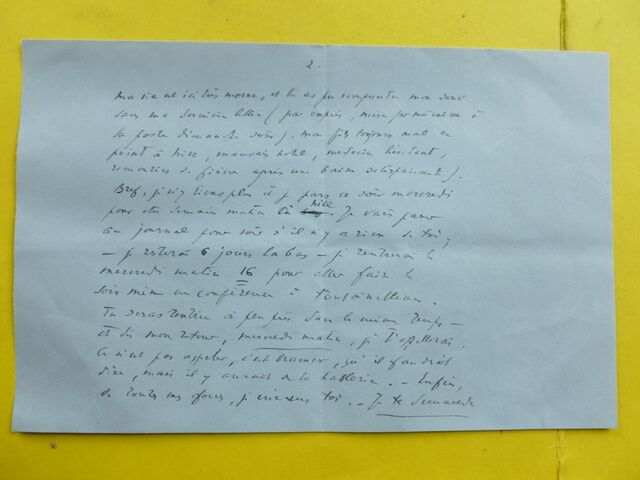 2.
ma vie est ici très morne, et tu as pu comprendre mon
dans ma dernière lettre (par exprès, mise par à
la poste dimanche soir). mon fils toujours mal en
point à Nice, mauvais hotel, medecin hésitant,
de fièvre après une baisse satisfaisante).
Bref, je n'y tiens plus et je pars ce soir mercredi
pour être demain matin à Nice. Je vais passer
au journal pour voir s'il n'y a rien de toi;
— je resterai 6 jours la bas — je rentrerai le
mercredi matin 16 pour aller faire le
soir même une conférence à Fontainebleau.
Tu seras rentrée à peu près dans le même temps —
et dès mon retour, mercredi matin, je t'appellerai.
Ce n'est pas appeler, c'est bramer, qu'il faudrait
dire, mais il y aurait de la hablerie. — Enfin,
de toutes mes forces, je crie vers toi. — Je te demande